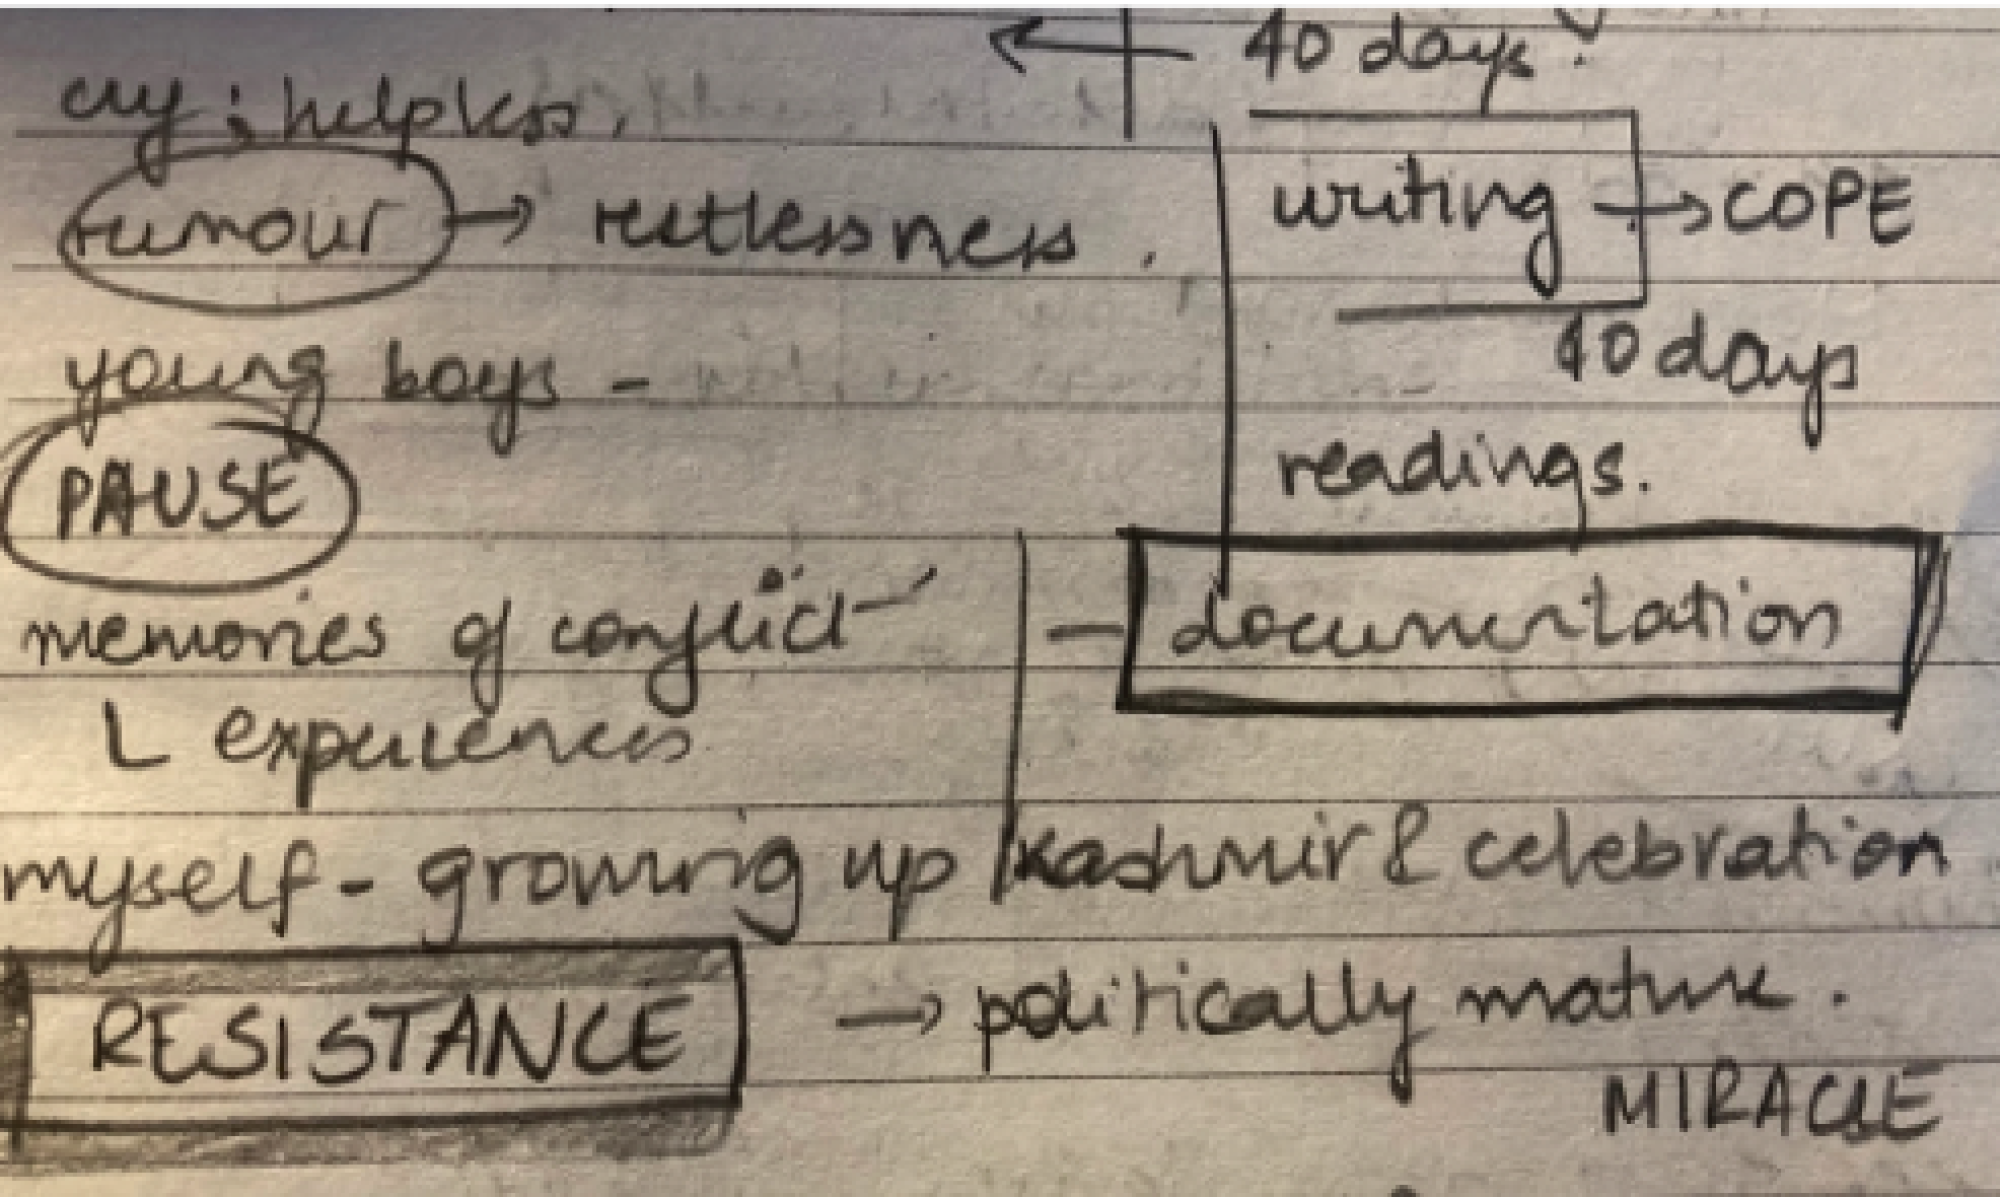 ← 40 days.
cry; helpless,
rumour → restlessness.
writing → COPE
40 days
young boys -
readings.
PAUSE
memories of conflict - documentation
L experiences
myself - growing up kashmir & celebration
RESISTANCE → politically mature.
MIRACLE